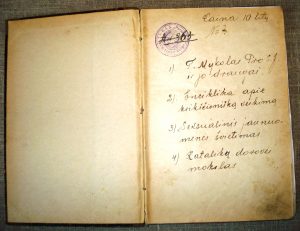 Kaina 10 litų
No 2
1) T. Mykolas Pro S.J.
ir jo draugai
2) Enciklika apie
krikščionišką veikimą
3) Seksualinis jaunuo-
menės švietimas
4) Katalikų dorovės
mokslas